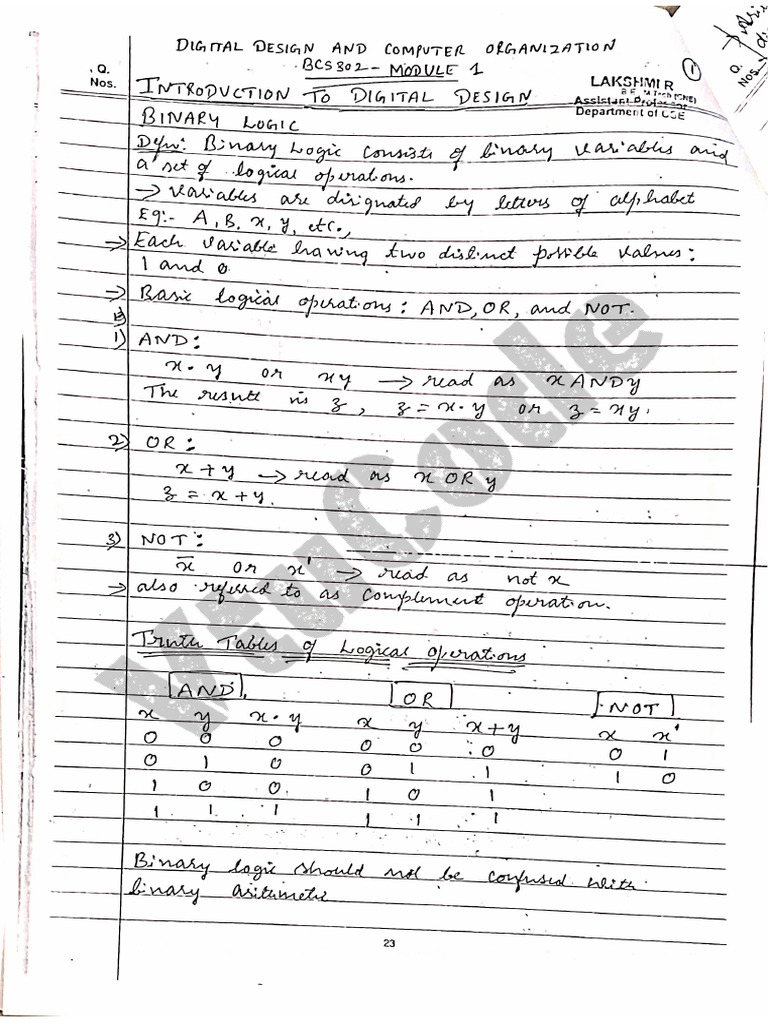 DIGITAL DESIGN AND COMPUTER ORGANIZATION
BCS302 - MODULE 1
1
Q.
Nos.
INTRODUCTION TO DIGITAL DESIGN
LAKSHMI R
Assistant Professor
Department of CSE
Q.
Nos.
BINARY LOGIC
Defn: Binary Logic consists of binary variables and
a set of logical operations.
→ variables are disignated by letters of alphabet
Eg:- A, B, x, y, etc.,
→ Each variable having two distinct possible values:
1 and 0
→ Basic logical operations: AND, OR, and NOT.
1) AND:
x·y or xy → read as x AND y
The result is z, z = x·y or z = xy.
2) OR:
x + y → read as x OR y
z = x + y.
3) NOT:
x̄ or x' → read as not x
→ also referred to as complement operation.
Truth Tables of Logical Operations
AND OR NOT
x y x·y x y x+y x x'
0 0 0 0 0 0 0 1
0 1 0 0 1 1 1 0
1 0 0 1 0 1
1 1 1 1 1 1
Binary logic should not be confused with
binary aritmetic
23
VTUCode